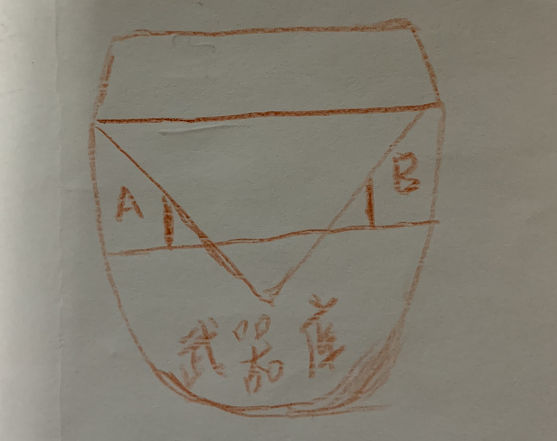 A B
武器店